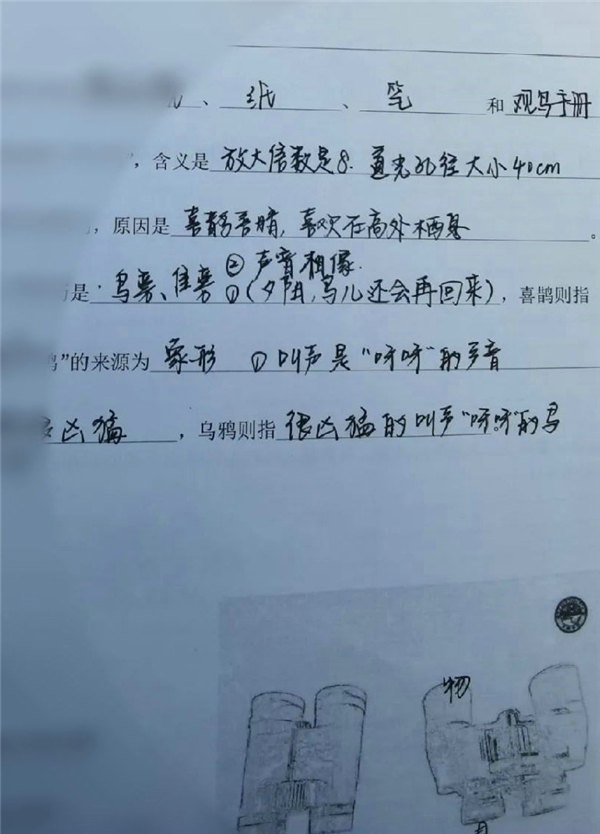 、纸、笔和观鸟手册
”,含义是放大倍数是8.直光孔径大小40cm
,原因是喜静喜晴,喜欢在高处栖息。
②声音相像.
是鸟旁、隹旁①(夕阳,鸟儿还会再回来),喜鹊则指
”的来源为象形 ①叫声是“呀呀”的声音
凶猛,乌鸦则指很凶猛的叫声“呀呀”的鸟
物